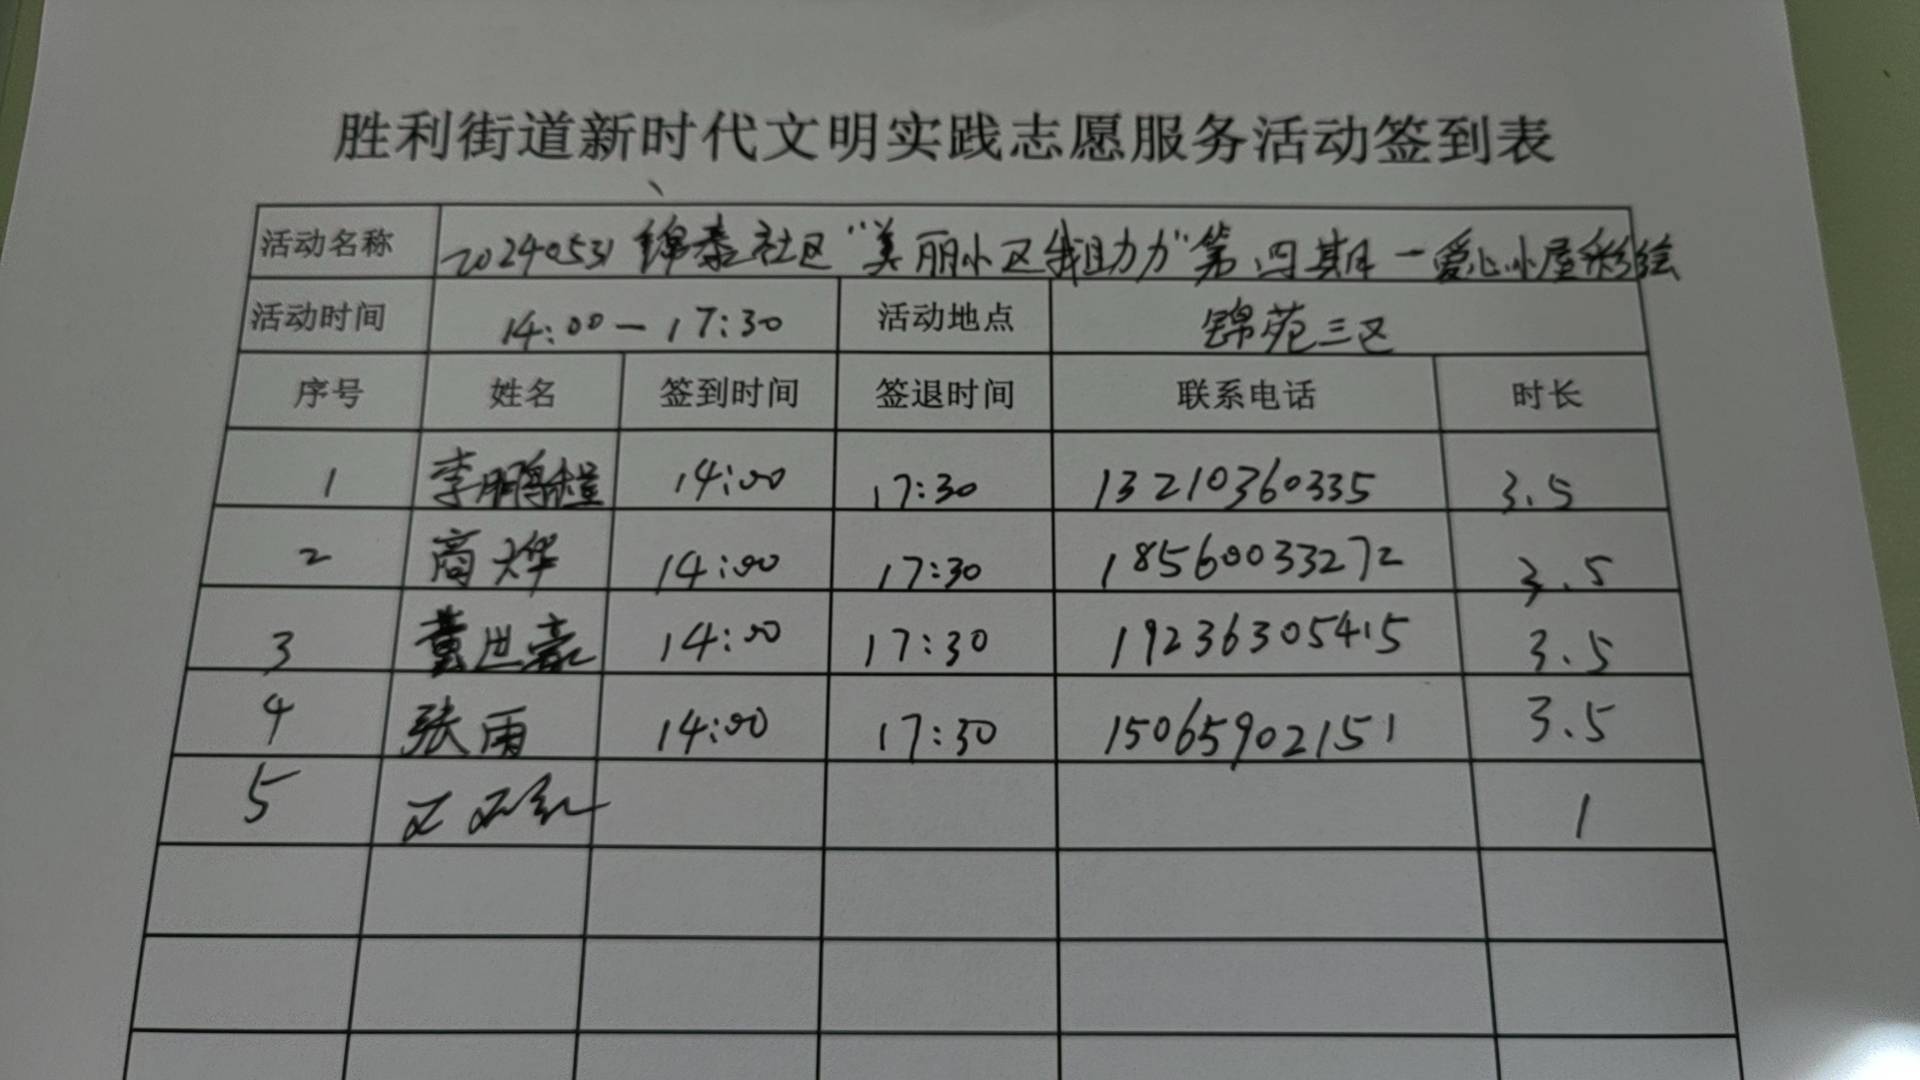 胜利街道新时代文明实践志愿服务活动签到表
活动名称 20240531锦泰社区“美丽小区我助力”第四期—爱心小屋彩绘
活动时间 14:00—17:30 活动地点 锦苑三区
序号 姓名 签到时间 签退时间 联系电话 时长
1 李鹏程 14:00 17:30 13210360335 3.5
2 商烨 14:00 17:30 18560033272 3.5
3 董世豪 14:00 17:30 19236305415 3.5
4 张雨 14:00 17:30 15065902151 3.5
5 1